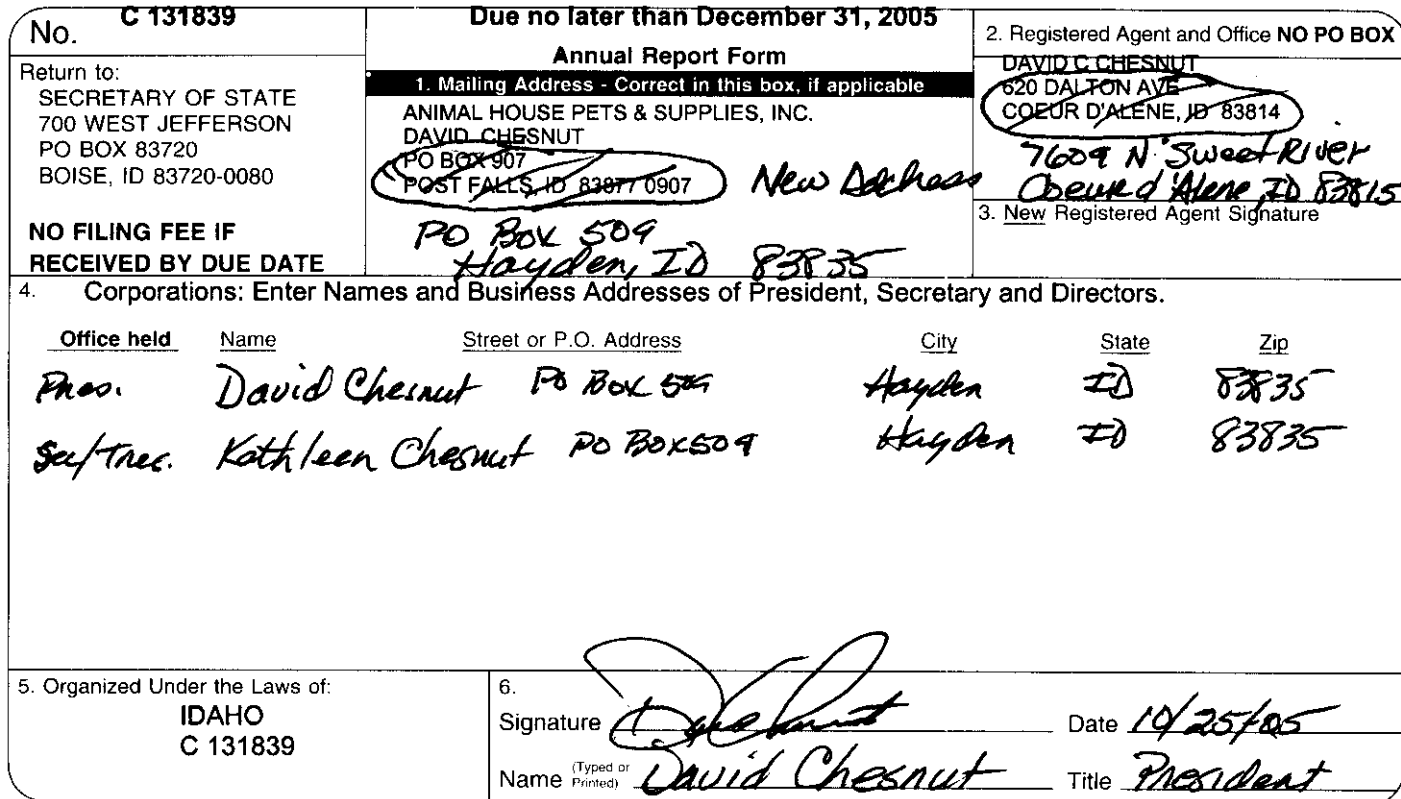 No. C 131839
Return to:
SECRETARY OF STATE
700 WEST JEFFERSON
PO BOX 83720
BOISE, ID 83720-0080
NO FILING FEE IF
RECEIVED BY DUE DATE
Due no later than December 31, 2005
Annual Report Form
1. Mailing Address - Correct in this box, if applicable
ANIMAL HOUSE PETS & SUPPLIES, INC.
DAVID CHESNUT
PO BOX 907
POST FALLS, ID 83877 0907
New Address
PO Box 509
Hayden, ID 83835
2. Registered Agent and Office NO PO BOX
DAVID C CHESNUT
620 DALTON AVE
COEUR D'ALENE, ID 83814
7609 N Sweet River
Coeur d'Alene, ID 83815
3. New Registered Agent Signature
4. Corporations: Enter Names and Business Addresses of President, Secretary and Directors.
Office held Name Street or P.O. Address City State Zip
Pres. David Chesnut PO Box 509 Hayden ID 83835
Sec/Tres. Kathleen Chesnut PO Box 509 Hayden ID 83835
5. Organized Under the Laws of:
IDAHO
C 131839
6.
Signature Date 10/25/05
Name (Typed or Printed) David Chesnut Title President